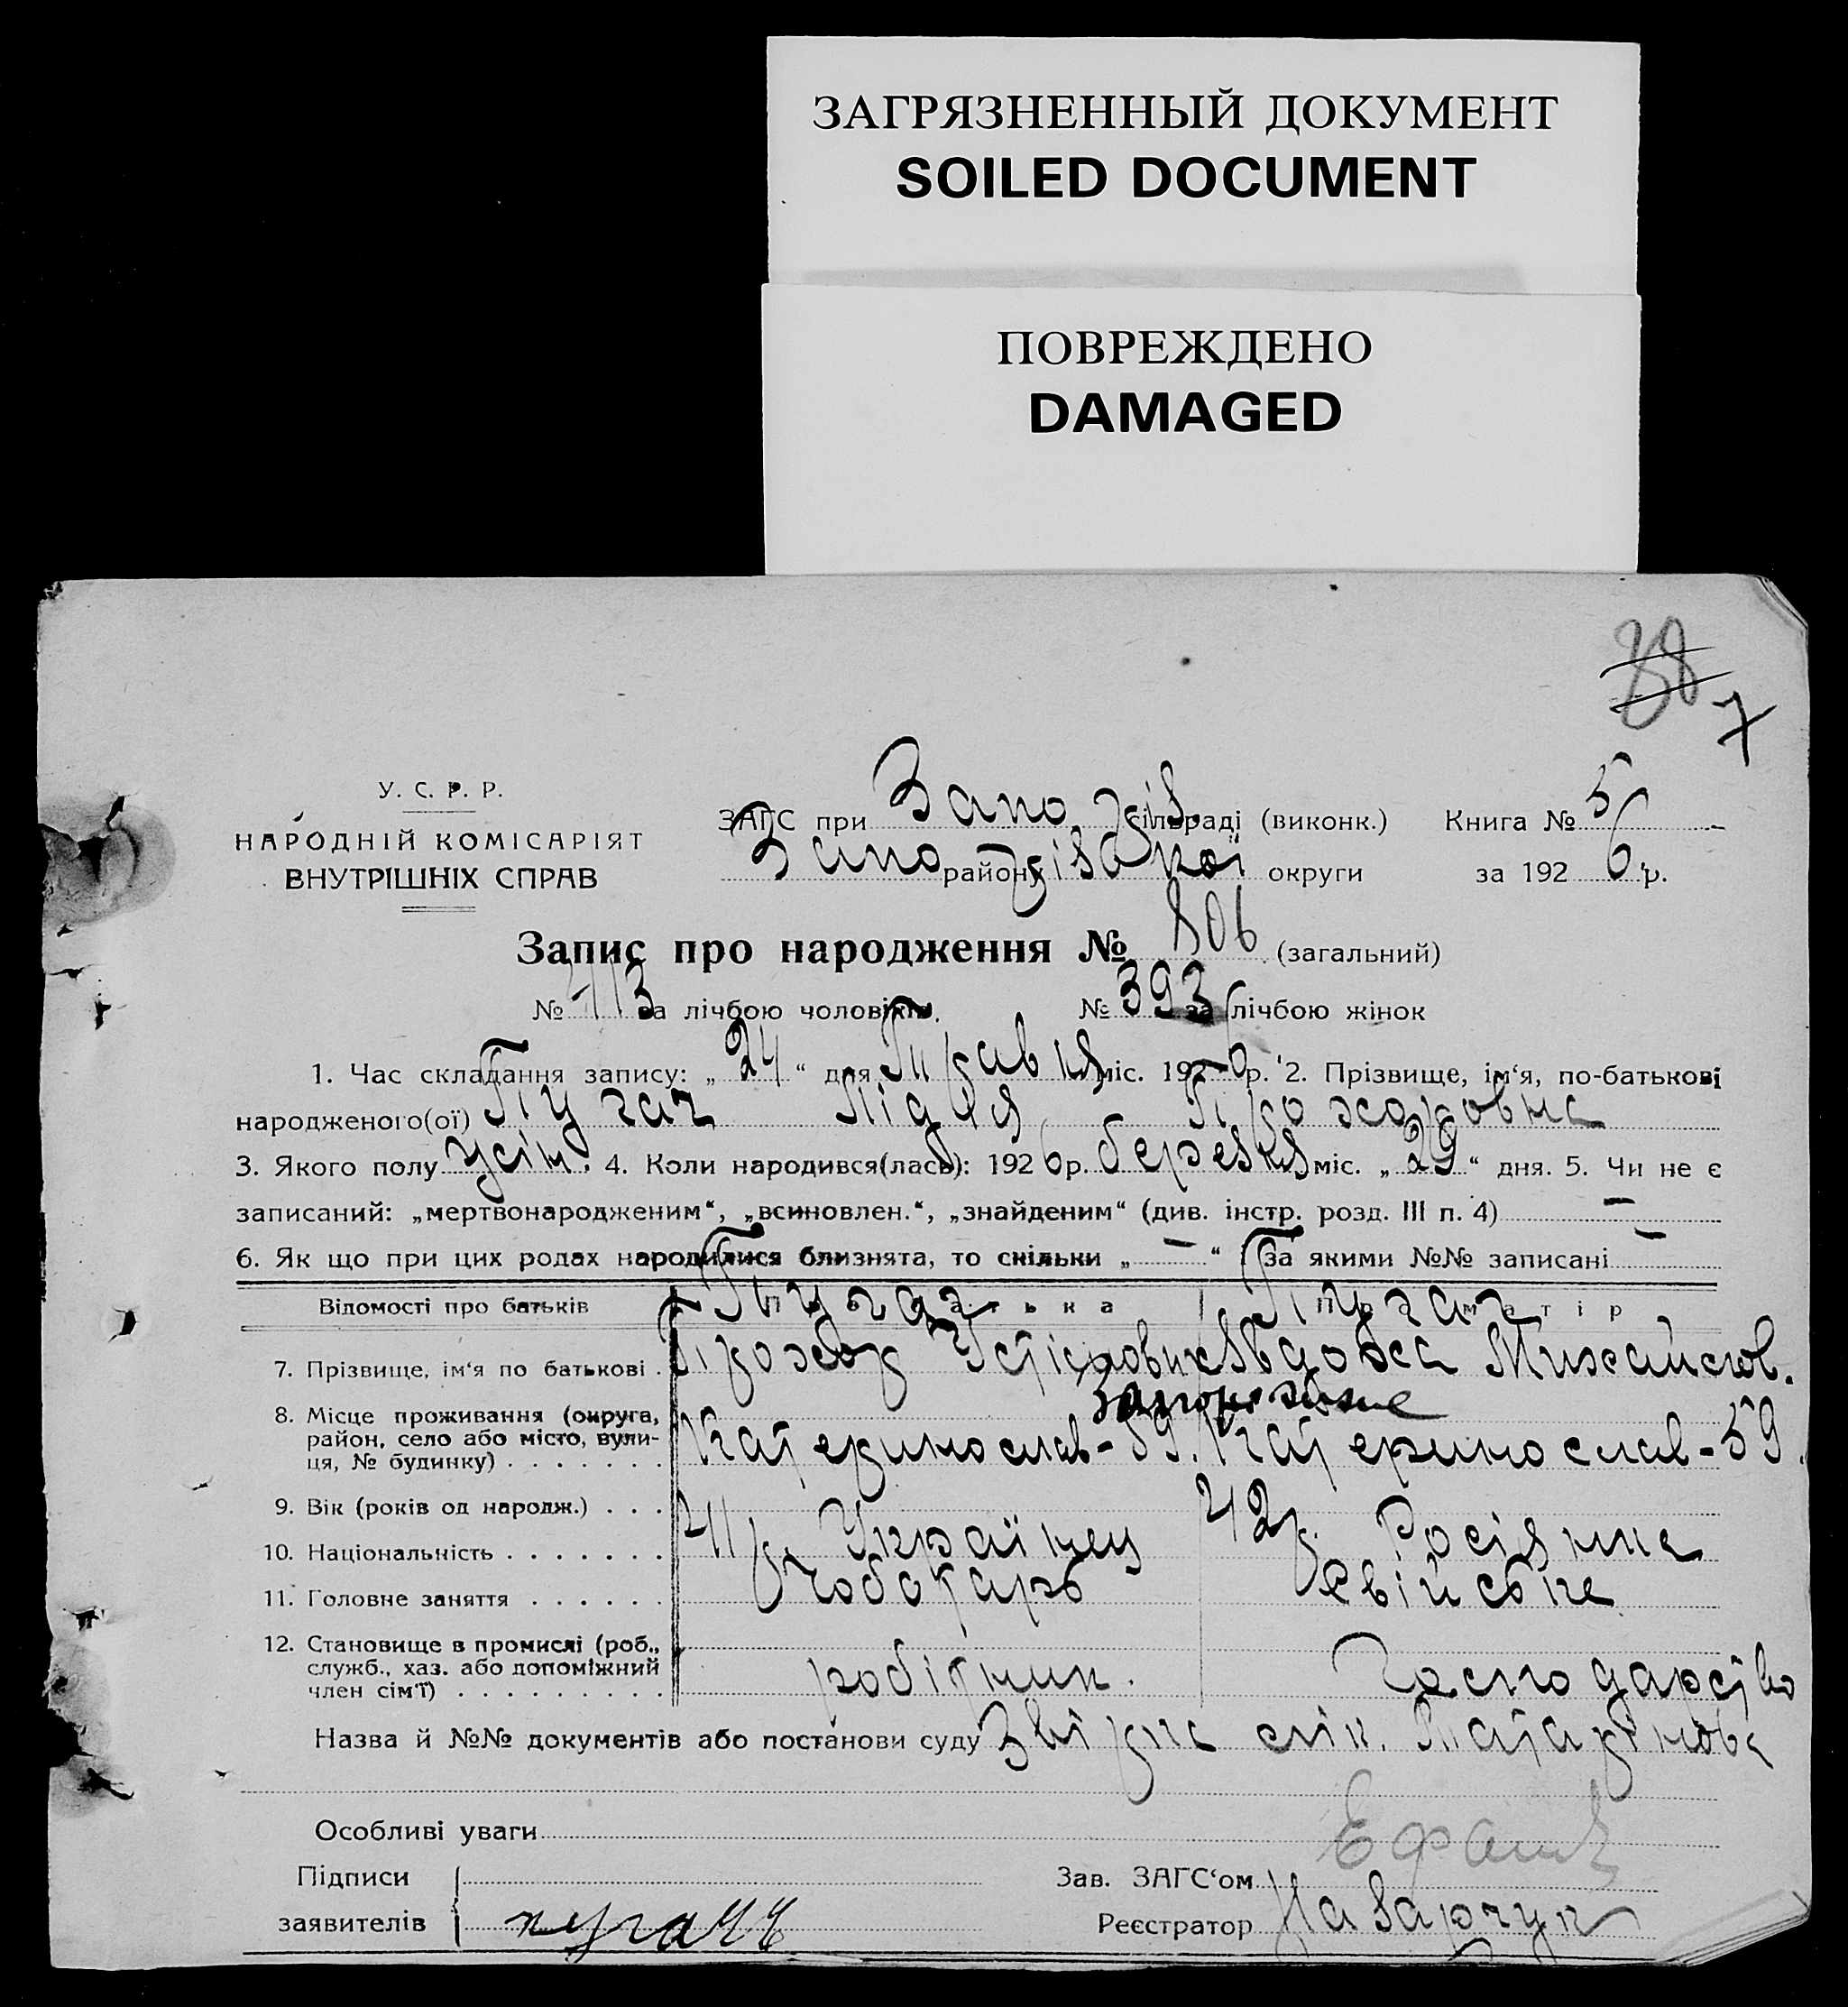 ЗАГРЯЗНЕННЫЙ ДОКУМЕНТ
SOILED DOCUMENT
ПОВРЕЖДЕНО
DAMAGED
38 7
У. С. Р. Р.
НАРОДНІЙ КОМІСАРІЯТ
ВНУТРІШНІХ СПРАВ
ЗАГС при Запорізь. сільраді (виконк.) Книга № 5
Запорізької району округи за 1926 р.
Запис про народження № 806 (загальний)
№ 413 за лічбою чоловіків. № 393 за лічбою жінок
1. Час складання запису: „24“ дня Травня міс. 1926 р. 2. Прізвище, ім‘я, по-батькові
народженого(ої) Пугач Лідия Прохоровна
3. Якого полу жін. 4. Коли народився(лась): 1926 р. березня міс. „29“ дня. 5. Чи не є
записаний: „мертвонародженим“, „всиновлен.“, „знайденим“ (див. інстр. розд. III п. 4) —
6. Як що при цих родах народилися близнята, то скільки „—“ за якими №№ записані —
Відомості про батьків Про батька Про матір
Пугач Пугач
7. Прізвище, ім‘я по батькові Прохор Устінович Явдоха Михайлов.
Запоріжжє
8. Місце проживання (округа, район, село або місто, вулиця, № будинку) Катеринослав-59. Катеринослав-59.
9. Вік (років од народж.) 41 р. 42 р.
10. Національність Українец Росіянка
11. Головне заняття Чоботарь свійське
12. Становище в промислі (роб., служб., хаз. або допоміжний член сім‘ї) робітник. Господарство
Назва й №№ документів або постанови суду Звірка лік.
Особливі уваги
Підписи
Зав. ЗАГС‘ом
заявителів Пугач Реєстратор Назарчук